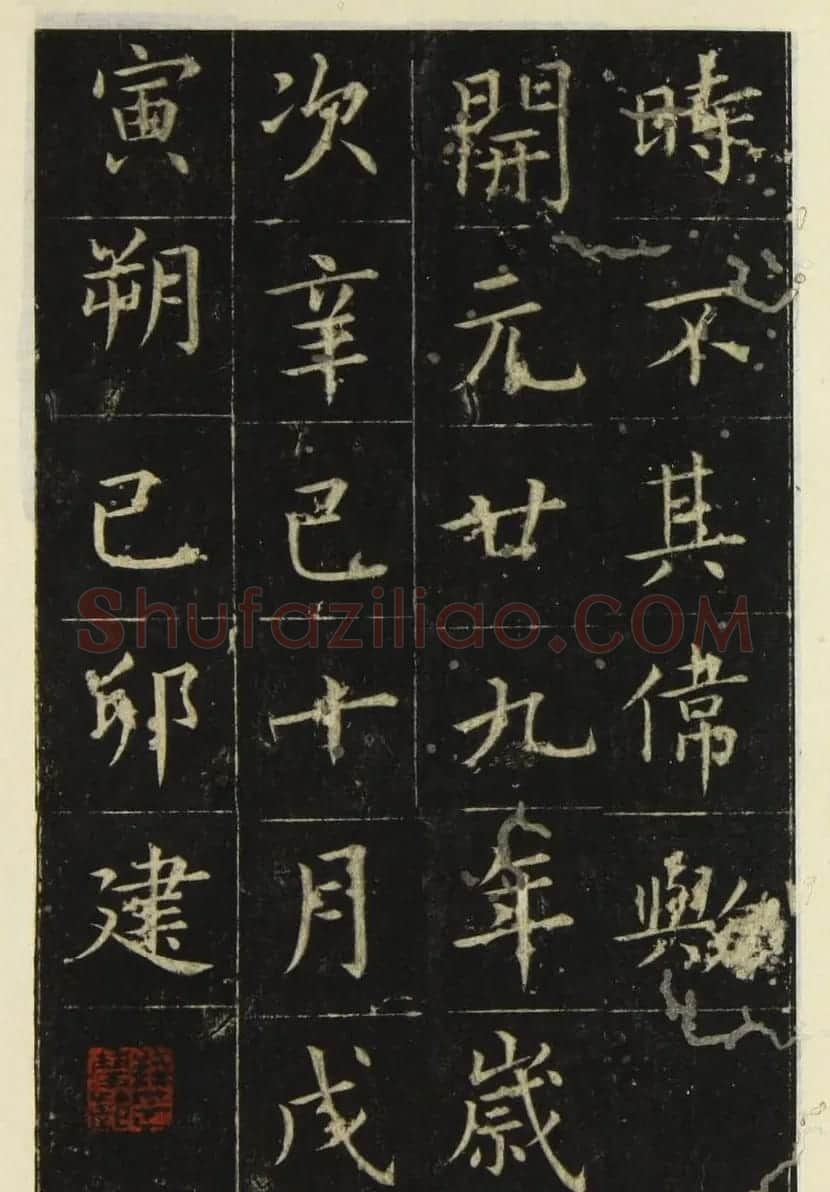 時不其偉歟
開元廿九年歲
次辛巳十月戊
寅朔己卯建
Shufaziliao.COM